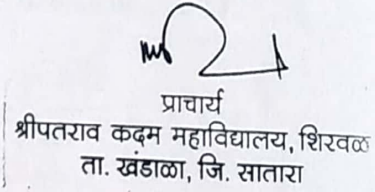 प्राचार्य
श्रीपतराव कदम महाविद्यालय, शिरवळ
ता. खंडाळा, जि. सातारा